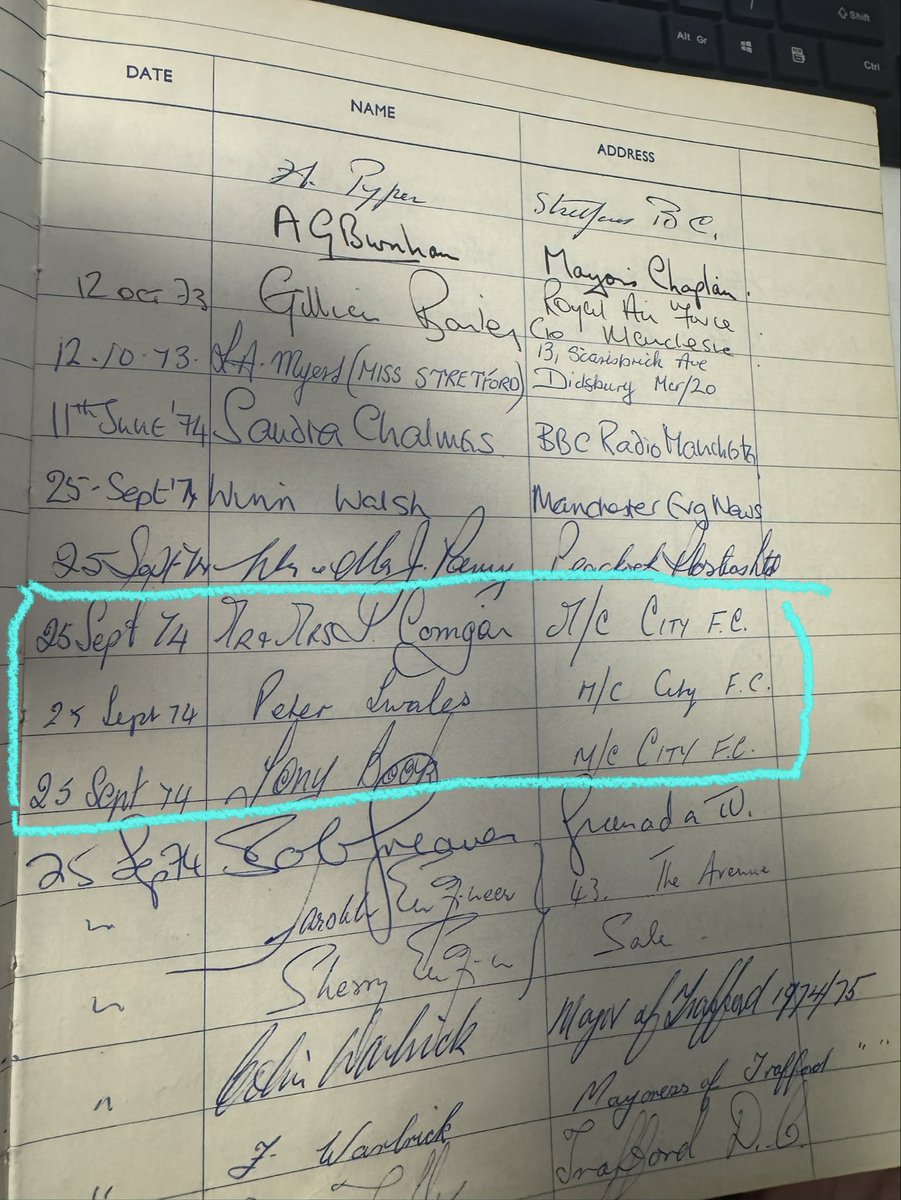 Shift
Alt Gr
Ctrl
DATE NAME ADDRESS
H. Pyper Stretford B.C.
A G Burnham Mayors Chaplain.
12 OCT 73 Gillian Bailey Royal Air Force
C/o Manchester
12.10.73. L.A. Myers (MISS STRETFORD) 13, Scarisbrick Ave
Didsbury Mcr/20
11th June '74 Sandra Chalmers BBC Radio Manchester
25-Sept '74 Winin Walsh Manchester Evg News
25 Sept 74 Mr & Mrs J.
25 Sept 74 MR & MRS P. Comgar M/C CITY F.C.
25 Sept 74 Peter Swales M/C City F.C.
25 Sept 74 Tony Book M/C CITY F.C.
25 Sep 74 Bob Greaves Granada TV.
" Farokh Engineer 43. The Avenue
" Sherry Engineer Sale.
" Colin Warbrick Mayor of Trafford 1974/75
F. Warbrick Mayoress of Trafford " "
" Trafford D.C.